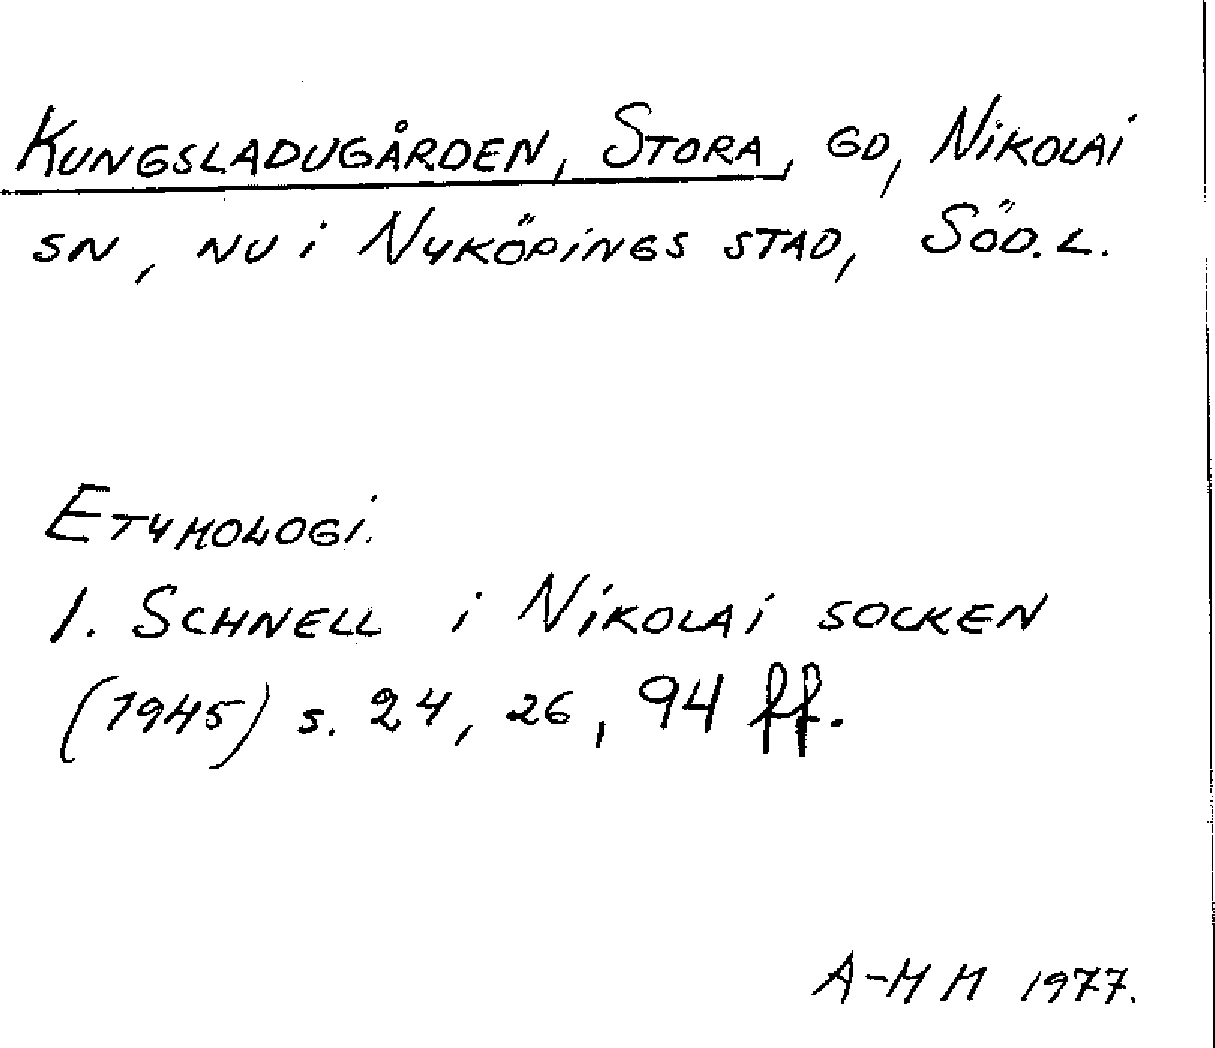 KUNGSLADUGÅRDEN, STORA, GD, NIKOLAI
SN, NU I NYKÖPINGS STAD, SÖD.L.
ETYMOLOGI.
1. SCHNELL I NIKOLAI SOCKEN
(1945) s. 24, 26, 94 ff.
A-M M 1977.